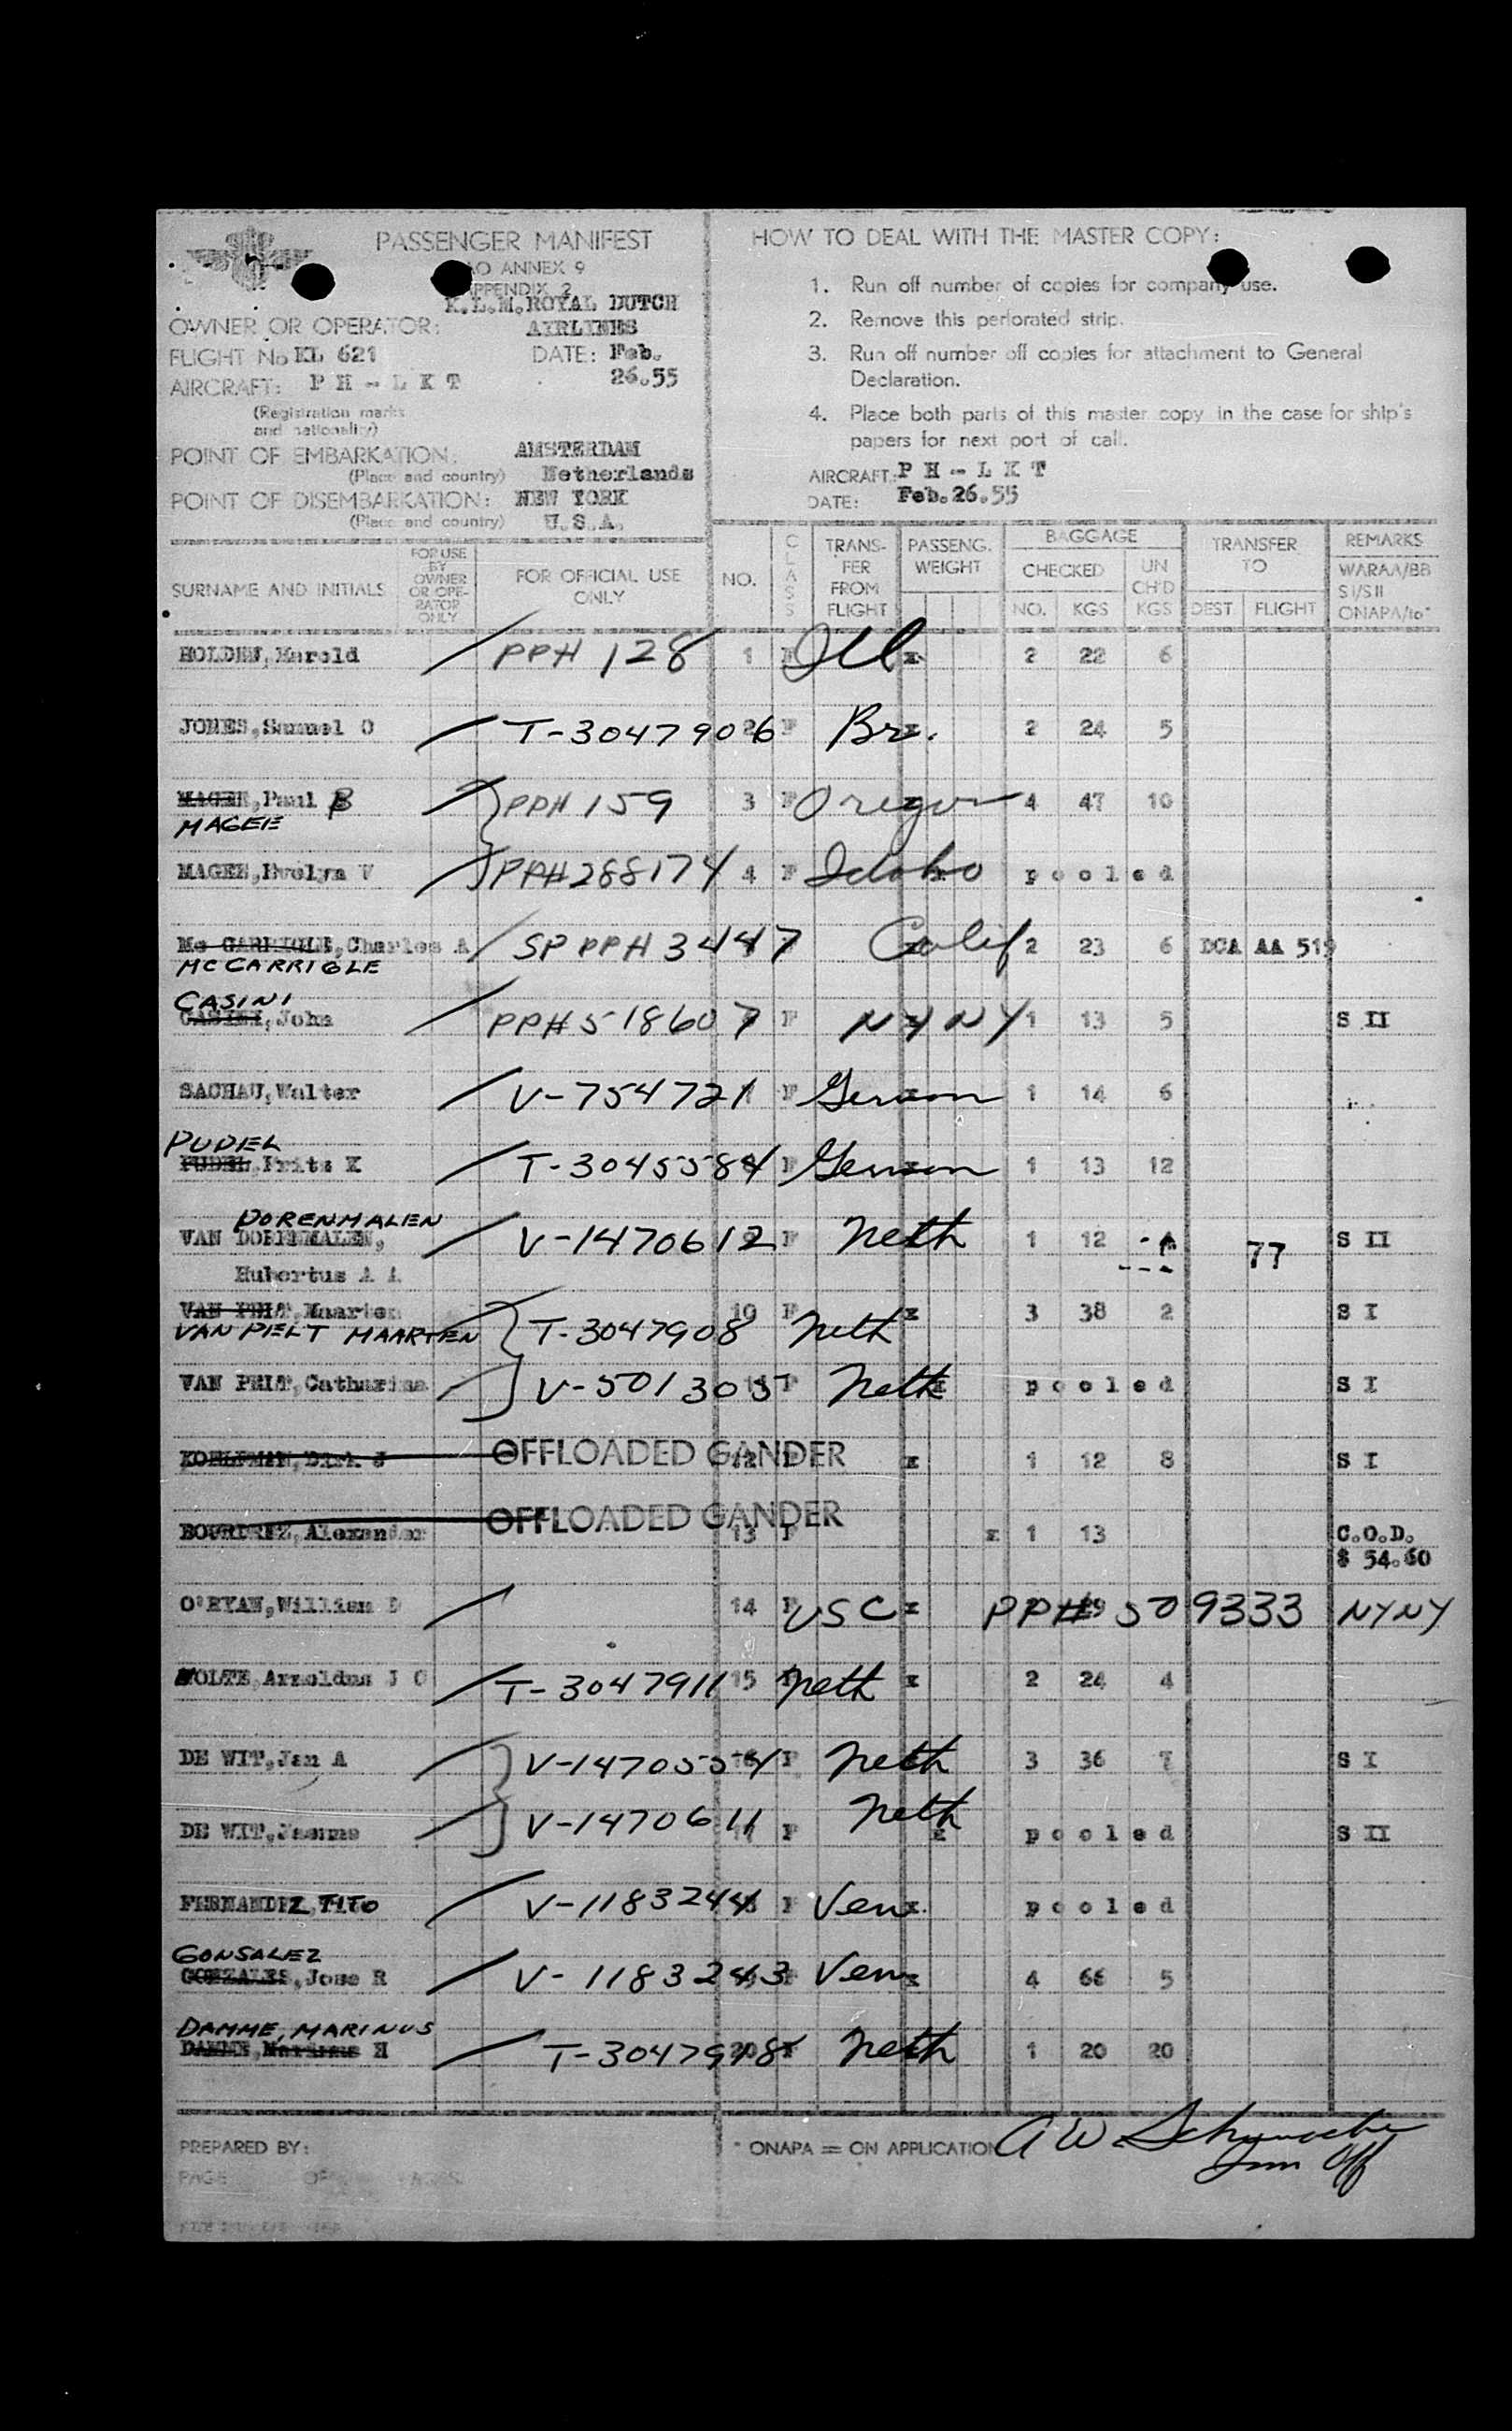 PASSENGER MANIFEST
AO ANNEX 9
APPENDIX 2
K.L.M. ROYAL DUTCH
OWNER OR OPERATOR: AIRLINES
FLIGHT No KL 621 DATE: Feb.
AIRCRAFT: PH-LKT 26.55
(Registration marks
and nationality)
POINT OF EMBARKATION: AMSTERDAM
(Place and country) Netherlands
POINT OF DISEMBARKATION: NEW YORK
(Place and country) U.S.A.
HOW TO DEAL WITH THE MASTER COPY:
1. Run off number of copies for company use.
2. Remove this perforated strip.
3. Run off number off copies for attachment to General
Declaration.
4. Place both parts of this master copy in the case for ship's
papers for next port of call.
AIRCRAFT: PH-LKT
DATE: Feb.26.55
SURNAME AND INITIALS
FOR USE BY OWNER OR OPE-RATOR ONLY
FOR OFFICIAL USE ONLY
NO.
CLASS
TRANS-FER FROM FLIGHT
PASSENG. WEIGHT
BAGGAGE
CHECKED
NO. KGS
UN CH'D KGS
TRANSFER TO
DEST FLIGHT
REMARKS
WARAA/BB
SI/SII
ONAPA/to*
HOLDEN, Harold / PPH 128 1 F Ill x 2 22 6
JONES, Samuel O / T-3047906 2 F Br. x 2 24 5
MAGEN, Paul B / PPH 159 3 F Oregon 4 47 10
MAGEE
MAGEE, Evelyn V / PPH 288174 4 F Idaho pooled
Charles A / SP PPH 3447 Calif 2 23 6 DCA AA 519
MC CARRIGLE
CASINI
John / PPH 518607 F NY NY 1 13 5 S II
SACHAU, Walter / V-754721 F German 1 14 6
PUDEL
Fritz K / T-3045584 F German 1 13 12
DORENMALEN
VAN DORENMALEN, / V-1470612 F Neth 1 12 77 S II
Hubertus A A
VAN PELT, Maarten 10 F x 3 38 2 S I
VAN PELT MAARTEN T-3047908 Neth
VAN PELT, Catharina / V-501305 F Neth x pooled S I
KOELEMAN, Dirk J OFFLOADED GANDER 12 x 1 12 8 S I
OFFLOADED GANDER
BOURDREZ, Alexander 13 F x 1 13 C.O.D.
$ 54.60
O'RYAN, William D / 14 F USC x PPH 509333 NYNY
Arnoldus J C / T-3047911 15 Neth x 2 24 4
DE WIT, Jan A / V-1470554 F Neth 3 36 7 S I
DE WIT, / V-1470611 F Neth x pooled S II
FERNANDEZ, TITO / V-1183244 F Ven x pooled
GONSALEZ
GONZALES, Jose R / V-1183243 F Ven x 4 66 5
DAMME, MARINUS
DAMME, Marinus H / T-3047918 F Neth 1 20 20
PREPARED BY:
* ONAPA = ON APPLICATION A W Schumacher
Imm Off
PAGE OF PAGES